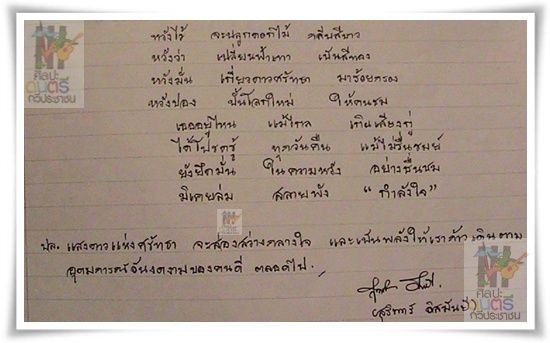 หวังไว้ จะปลูกดอกไม้ กลีบสีขาว
หวังว่า เปลี่ยนฟ้าเทา เป็นสีทอง
หวังมั่น เกี่ยวดาวศรัทธา มาร้อยกรอง
หวังปอง ปั้นโลกใหม่ ให้คนชม
เธออยู่ไหน แม้ไกล เกินเสียงกู่
ได้โปรดรู้ ทุกวันคืน แม้ไม่รื่นรมย์
ยังยึดมั่น ในความหวัง อย่างชื่นชม
มิเคยล่ม สลายพัง “กำลังใจ”
ปล. แสงดาวแห่งศรัทธา จะส่องสว่างกลางใจ และเป็นพลังให้เราก้าวเดินตาม
อุดมการณ์อันงดงามของคนดี ตลอดไป.
(สุริทาร์
ศิลปะ
ดนตรี
กวีประชาชน
ศิลปะ
ดนตรี
กวีประชาชน